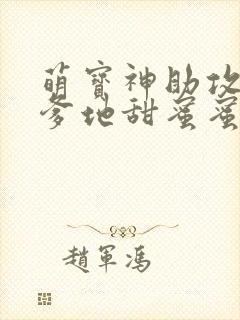 萌寶神助攻
爹地甜蜜蜜
趙軍馮